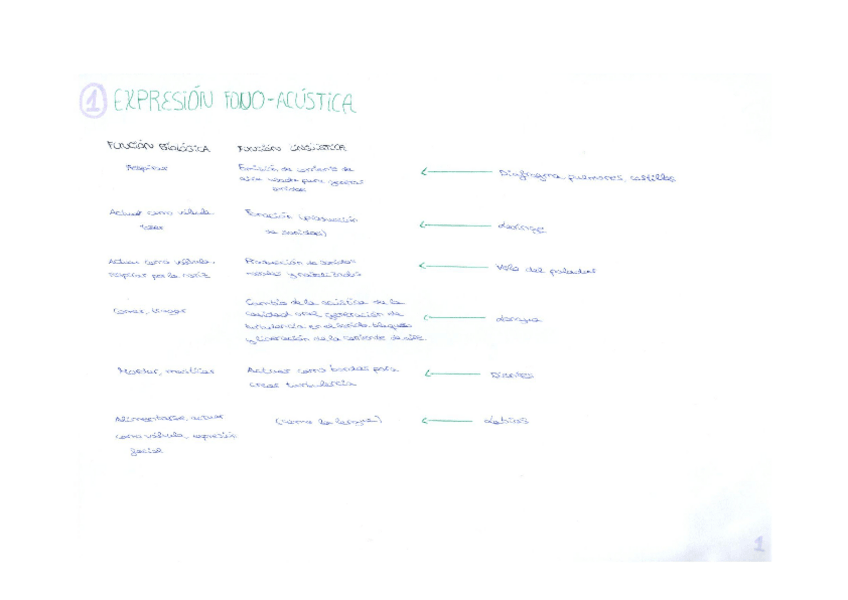 1 EXPRESIÓN FONO-ACÚSTICA
FUNCIÓN BIOLÓGICA FUNCIÓN LINGÜÍSTICA
Respirar
Emisión de corriente de
aire usada para generar
sonidos
Diafragma, pulmones, costillas
Actuar como válvula,
toser
Fonación (producción
de sonidos)
Laringe
Actuar como válvula,
respirar por la nariz
Producción de sonidos
nasales y nasalizados
Velo del paladar
Comer, tragar
Cambio de la acústica de la
cavidad oral, generación de
turbulencia en el sonido, bloqueo
y liberación de la corriente de aire.
Lengua
Morder, masticar
Actuar como bordes para
crear turbulencia
Dientes
Alimentarse, actuar
como válvula, expresión
facial
(como la lengua)
Labios
1